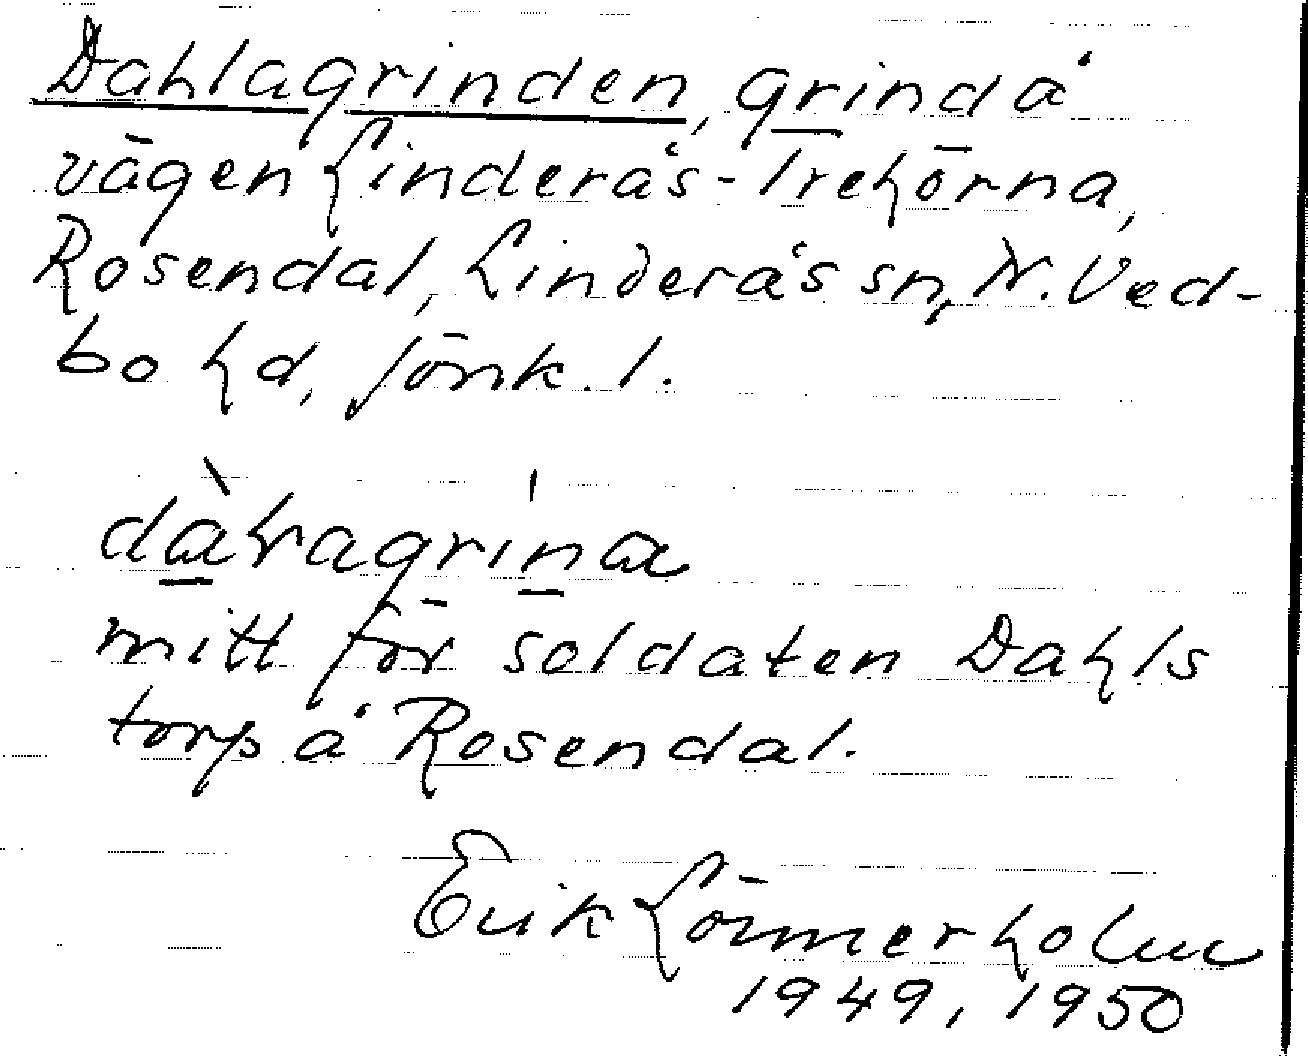 Dahlagrinden, grind å
vägen Linderås-Trehörna,
Rosendal, Linderås sn, N. Ved-
bo hd, Jönk. l.
dàhagrina
mitt för soldaten Dahls
torp å Rosendal.
Erik Lönnerholm
1949, 1950